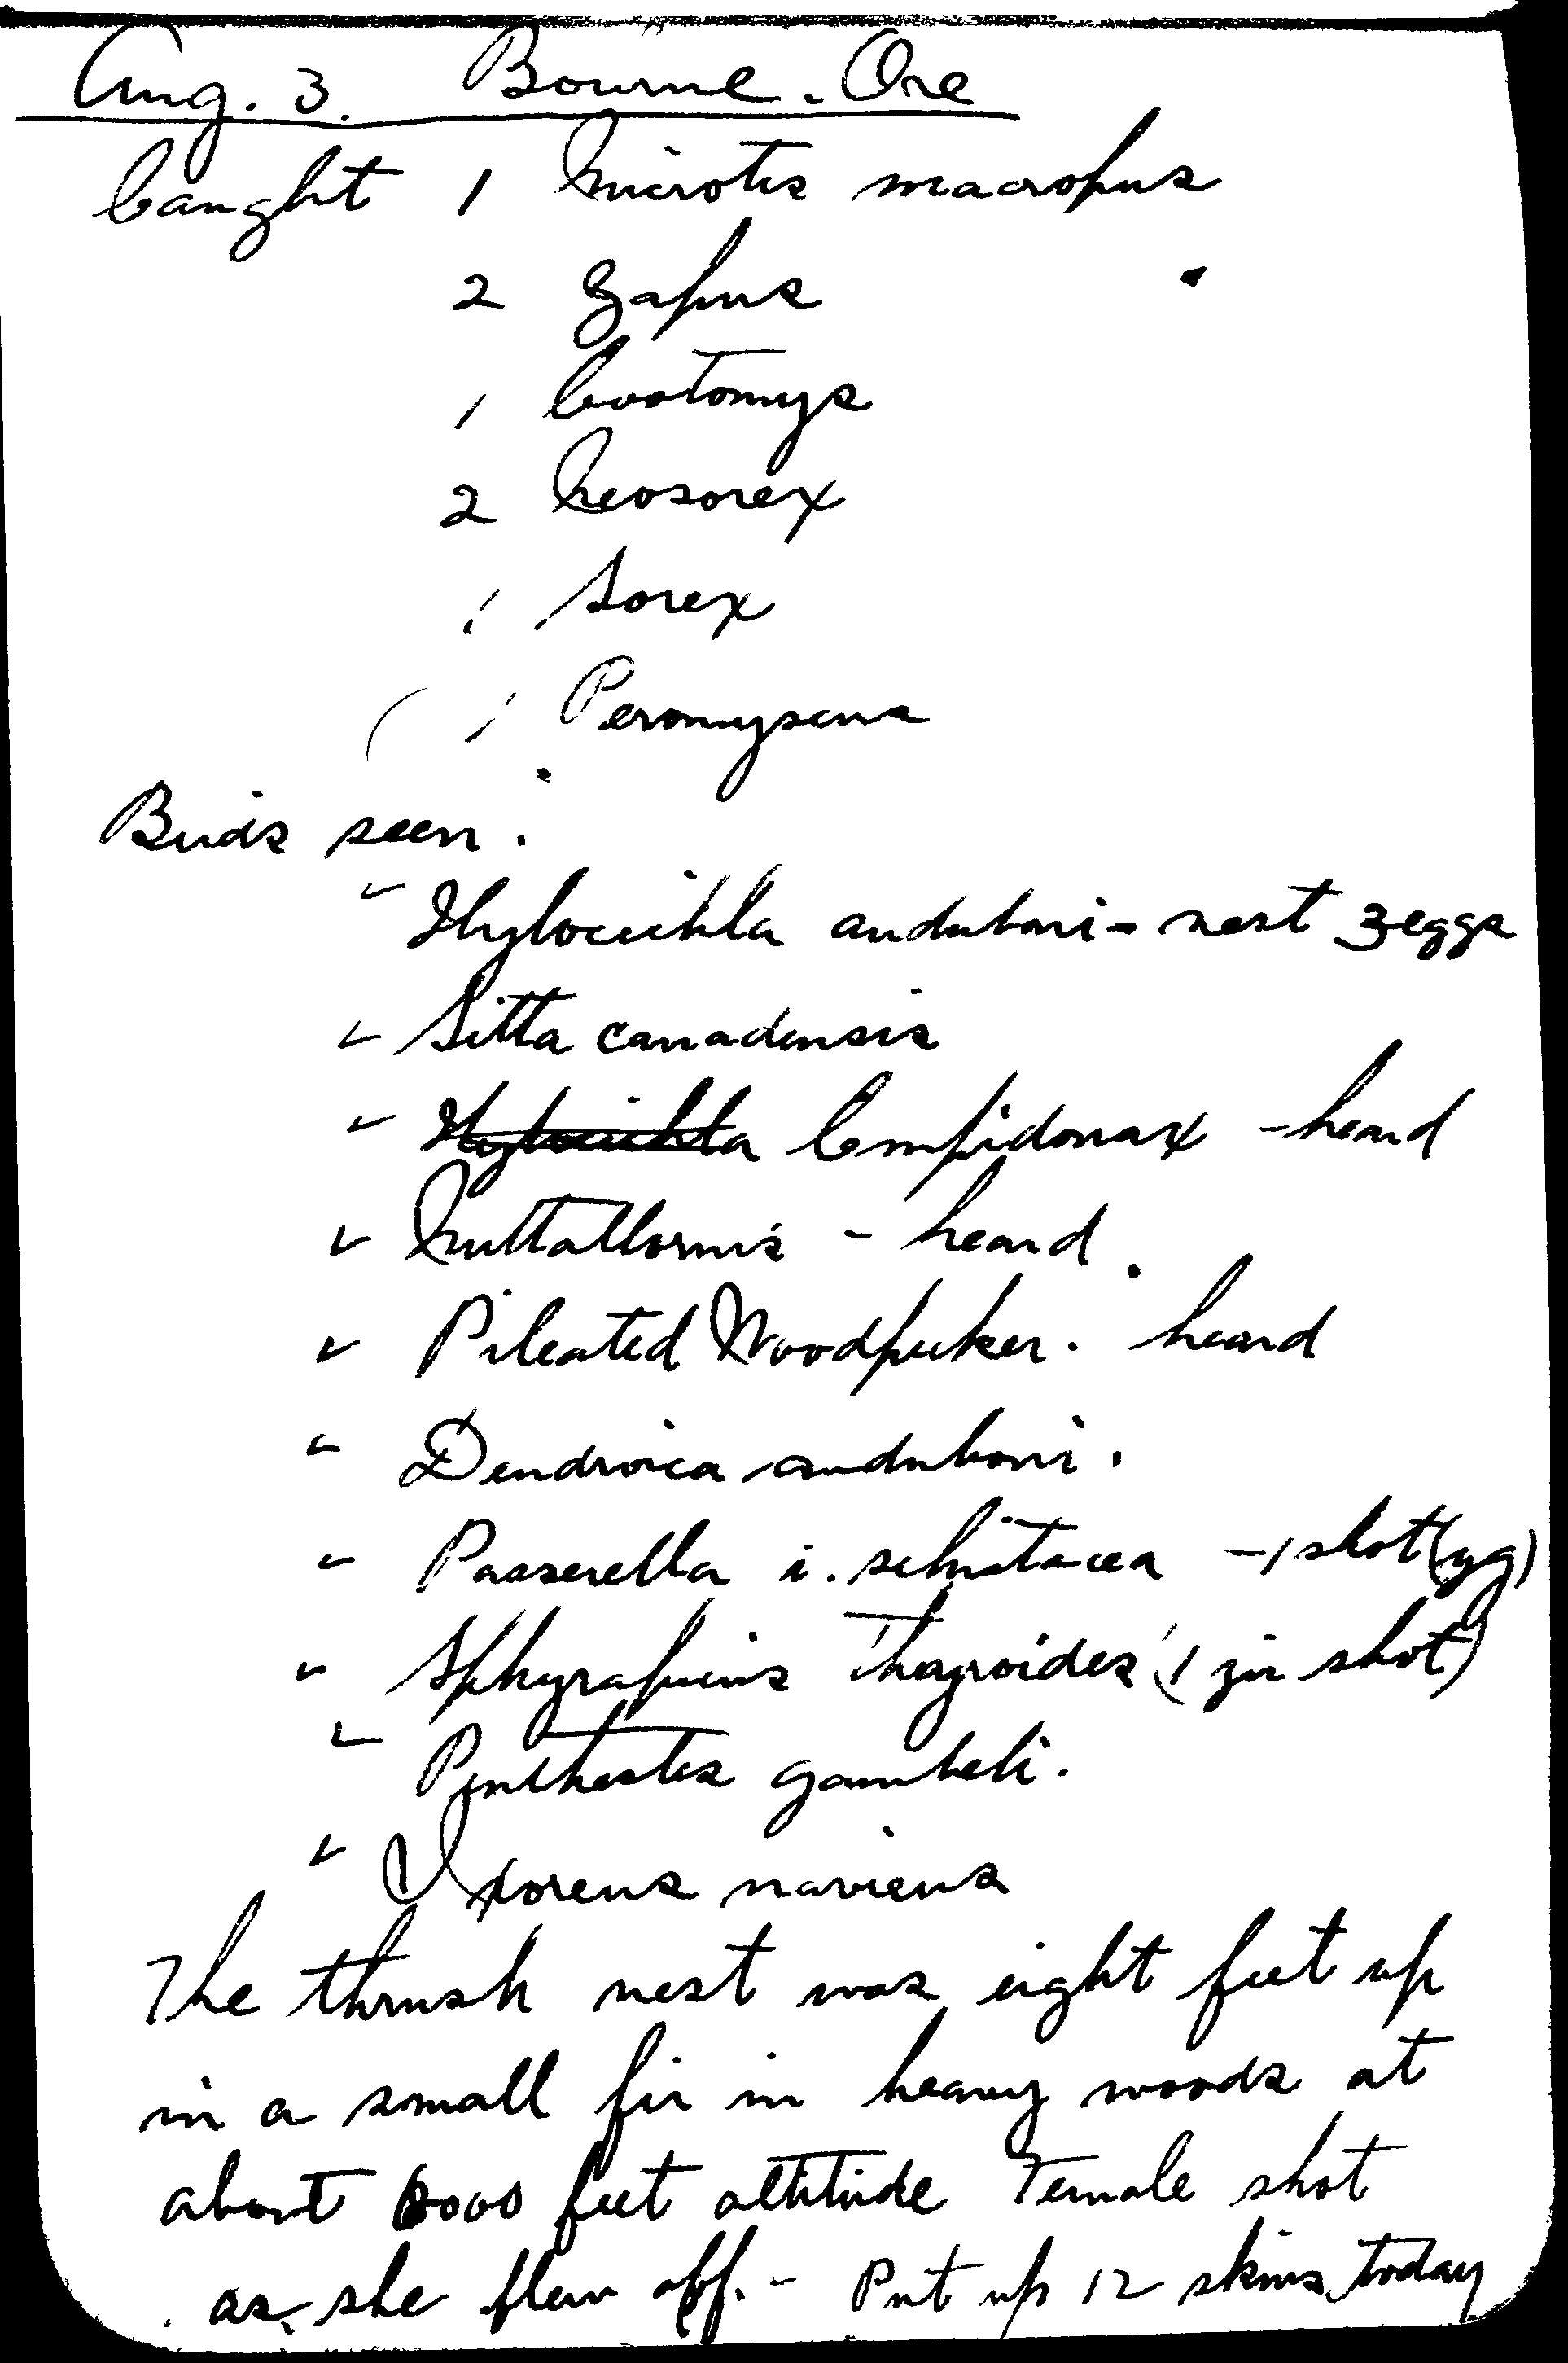 Aug. 3. Bourne. Ore
Caught 1 Microtus macropus
2 Zapus
1 Evotomys
2 Neosorex
1 Sorex
( 1 Peromyscus
Birds seen.
✓ Hylocichla auduboni - nest 3 eggs
✓ Sitta canadensis
✓ Hylocichla Empidonax - heard
✓ Nuttallornis - heard.
✓ Pileated Woodpecker. heard
✓ Dendroica auduboni.
✓ Passerella i. schistacea - 1 shot (yg)
✓ Sphyrapicus thyroides (1 juv shot)
✓ Penthestes gambeli.
✓ Ixoreus naevius
The thrush nest was eight feet up
in a small fir in heavy woods at
about 6000 feet altitude Female shot
as she flew off. - Put up 12 skins today